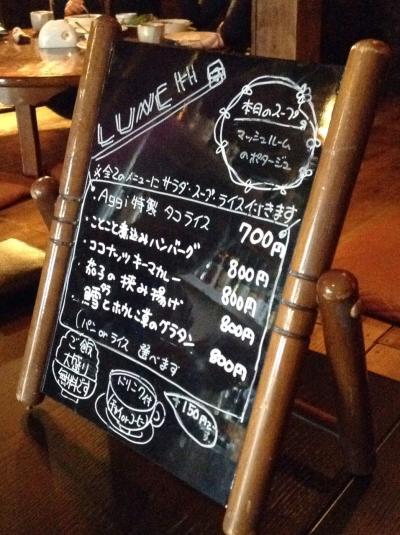 LUNCH
本日のスープ
マッシュルーム
のポタージュ
※全てのメニューに サラダ・スープ・ライス付きます
・Aggi特製 タコライス 700円
・ことこと煮込みハンバーグ 800円
・ココナッツキーマカレー 800円
・茄子の挟み揚げ 800円
・鱈とホウレン草のグラタン 800円
(パン or ライス 選べます
ご飯
大盛り
無料です
ドリンク付
+150円です